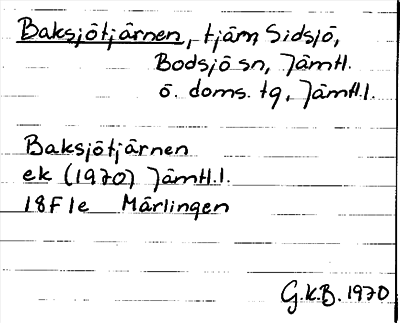 Baksjötjärnen, tjärn, Sidsjö,
Bodsjö sn, Jämtl.
ö. doms. tg, Jämtl. l.
Baksjötjärnen
ek (1970) Jämtl. l.
18F1e Märlingen
G.K.B. 1970